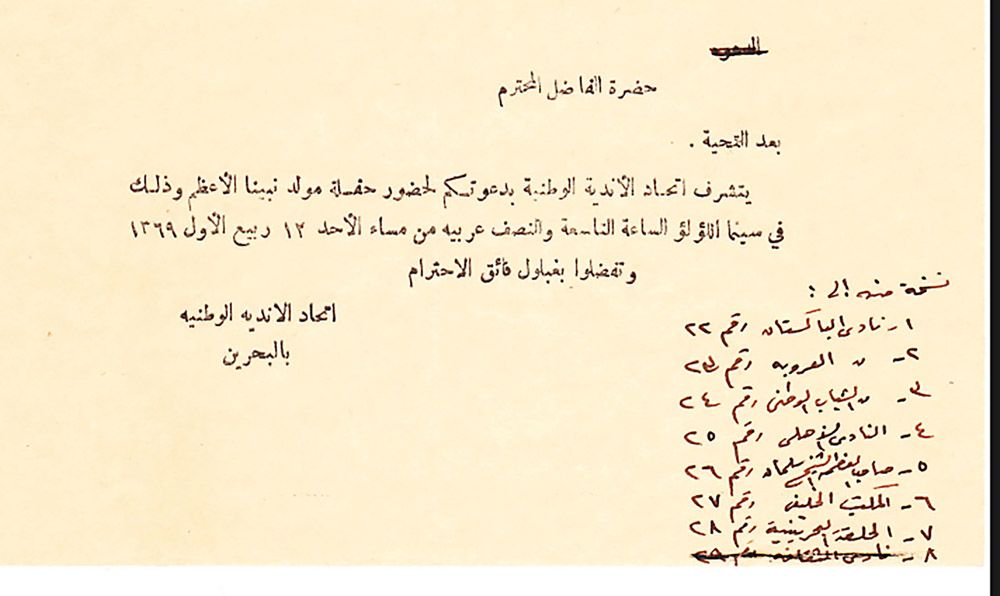 حضرة الفاضل المحترم
بعد التحية .
يتشرف اتحاد الأندية الوطنية بدعوتكم لحضور حفلة مولد نبينا الأعظم وذلك
في سينما اللؤلؤ الساعة التاسعة والنصف عربيه من مساء الأحد ١٢ ربيع الأول ١٣٦٩
وتفضلوا بقباول فائق الاحترام
اتحاد الانديه الوطنيه
بالبحرين
نسخة منه الى :
١ - نادى الباكستان رقم ٢٢
٢ - ن العروبه رقم ٢٣
٣ - ن الشباب الوطنى رقم ٢٤
٤ - النادى الأهلى رقم ٢٥
٥ - صاحب العظمة الشيخ سلمان رقم ٢٦
٦ - المكتب الخليفى رقم ٢٧
٧ - الحلقة البحرينية رقم ٢٨
٨ - نادى رقم ٢٩